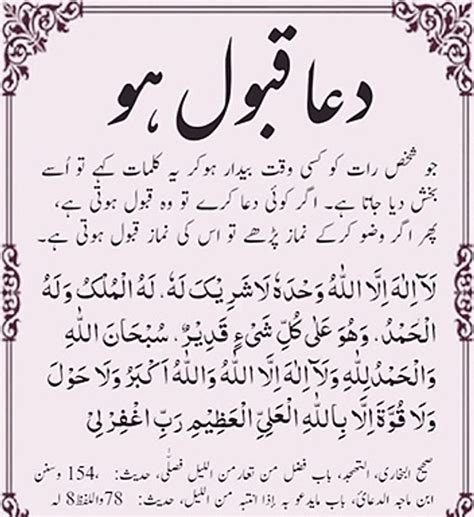 دعا قبول ہو
جو شخص رات کو کسی وقت بیدار ہو کر یہ کلمات کہے تو اُسے
بخش دیا جاتا ہے۔ اگر کوئی دعا کرے تو وہ قبول ہوتی ہے،
پھر اگر وضو کرکے نماز پڑھے تو اس کی نماز قبول ہوتی ہے۔
لَآ اِلٰهَ اِلَّا اللّٰهُ وَحْدَهٗ لَا شَرِيْكَ لَهٗ، لَهُ الْمُلْكُ وَلَهُ
الْحَمْدُ، وَهُوَ عَلٰى كُلِّ شَيْءٍ قَدِيْرٌ، سُبْحَانَ اللّٰهِ
وَالْحَمْدُ لِلّٰهِ وَلَآ اِلٰهَ اِلَّا اللّٰهُ وَاللّٰهُ اَكْبَرُ وَلَا حَوْلَ
وَلَا قُوَّةَ اِلَّا بِاللّٰهِ الْعَلِيِّ الْعَظِيْمِ رَبِّ اغْفِرْ لِيْ
صحیح البخاری، التھجد، باب فضل من تعار من اللیل فصلّی، حدیث: 154، وسنن
ابن ماجہ الدعائ، باب مایدعو بہ إذا انتبہ من اللیل، حدیث: 78 واللفظ 8 لہ